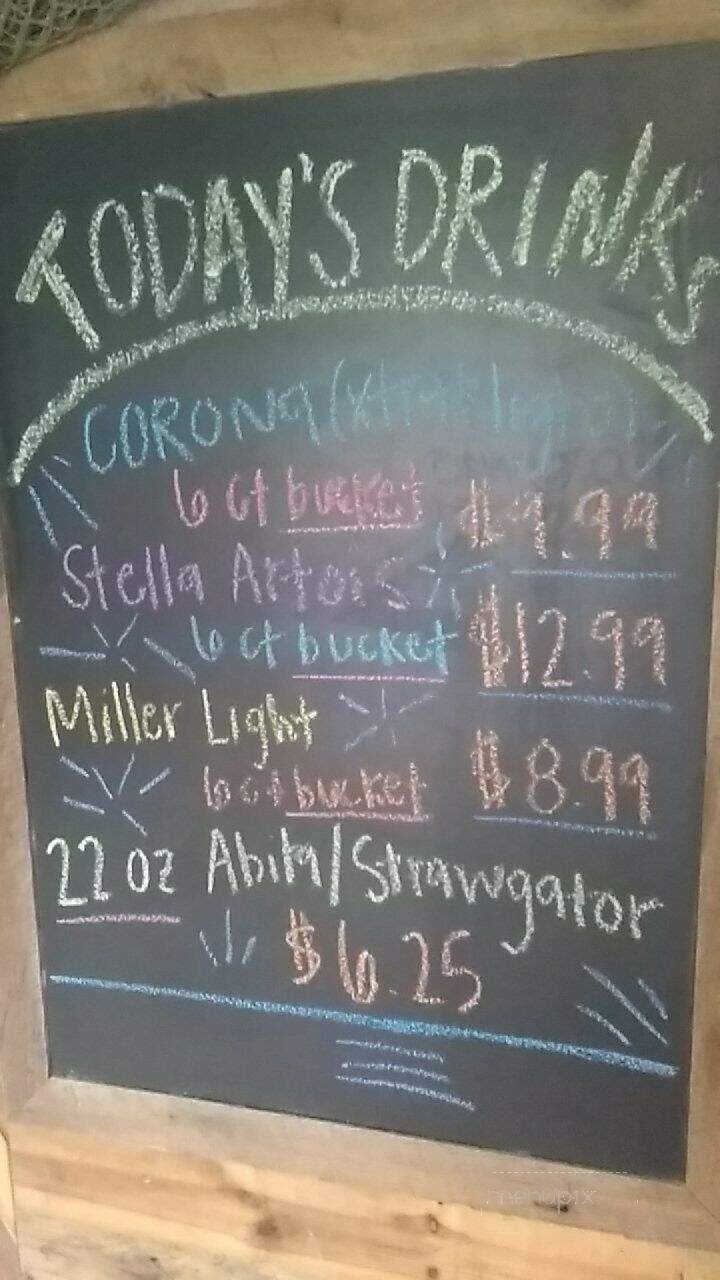 TODAY'S DRINKS
CORONA (xtra + light)
6 ct bucket $9.99
Stella Artois
6 ct bucket $12.99
Miller Light
6 ct bucket $8.99
22 oz Abita/Strawgator
$6.25
menupix